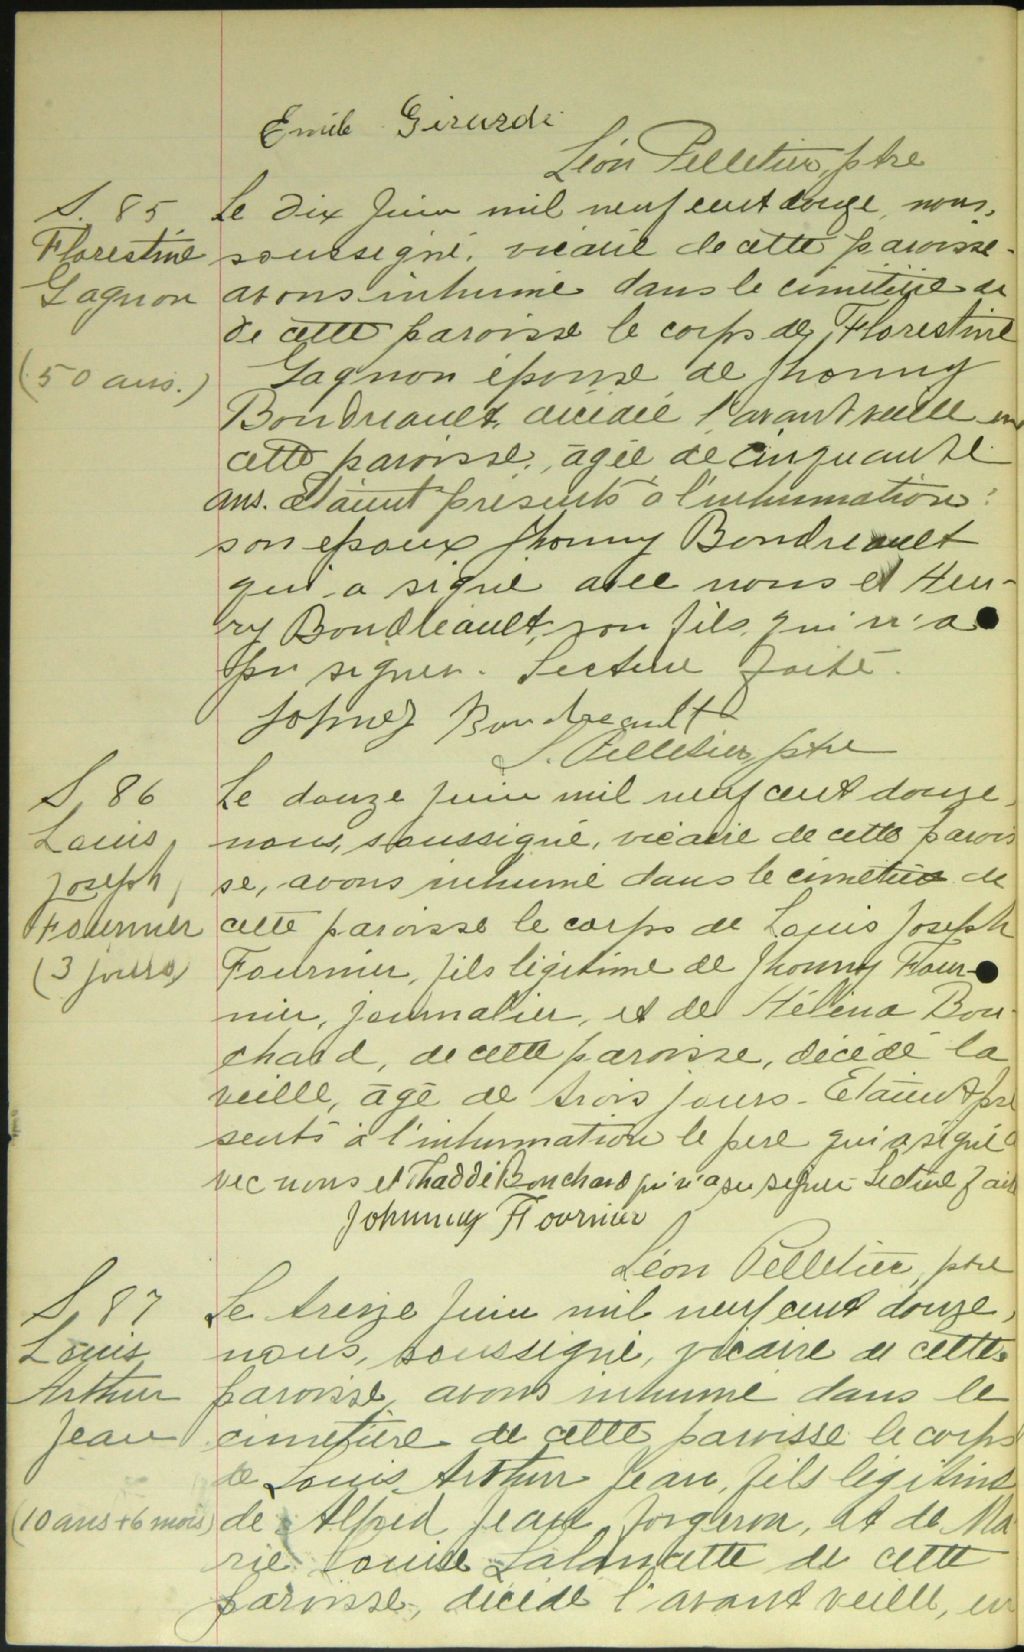 Emile Girarde
Léon Pelletier, ptre
S. 85
Florestine
Gagnon
(50 ans.)
Le dix juin mil neuf cent douze, nous,
soussigné, vicaire de cette paroisse
avons inhumé dans le cimetière de
de cette paroisse le corps de Florestine
Gagnon épouse de Jhonny
Boudreault, décédée l'avant veille en
cette paroisse, âgée de cinquante
ans. Etaient présents à l'inhumation:
son epoux Jhonny Boudreault
qui a signé avec nous et Hen-
ry Boudreault, son fils, qui n'a
pu signer. Lecture faite.
Johney Boudreault
L. Pelletier, ptre
S. 86
Louis
Joseph
Fournier
(3 jours)
Le douze juin mil neuf cent douze,
nous, soussigné, vicaire de cette parois
se, avons inhumé dans le cimetière de
cette paroisse le corps de Louis Joseph
Fournier, fils légitime de Jhonny Four-
nier, journalier, et de Hélèna Bou-
chard, de cette paroisse, décédé la
veille, âgé de trois jours. Etaient pré
sents à l'inhumation le père qui a signé a
vec nous et Thaddé Bouchard qui n'a su signer. Lecture faite
Johnny Fournier
Léon Pelletier, ptre
S. 87
Louis
Arthur
Jean
(10 ans + 6 mois)
Le treize juin mil neuf cent douze,
nous, soussigné, vicaire de cette
paroisse, avons inhumé dans le
cimetière de cette paroisse le corps
de Louis Arthur Jean, fils légitime
de Alfred Jean forgeron, et de Ma
rie Louise Lalancette de cette
paroisse, décédé l'avant veille, en